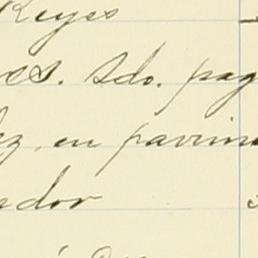 Reyes
es. Sdo. pag
ez, en pavim
ador